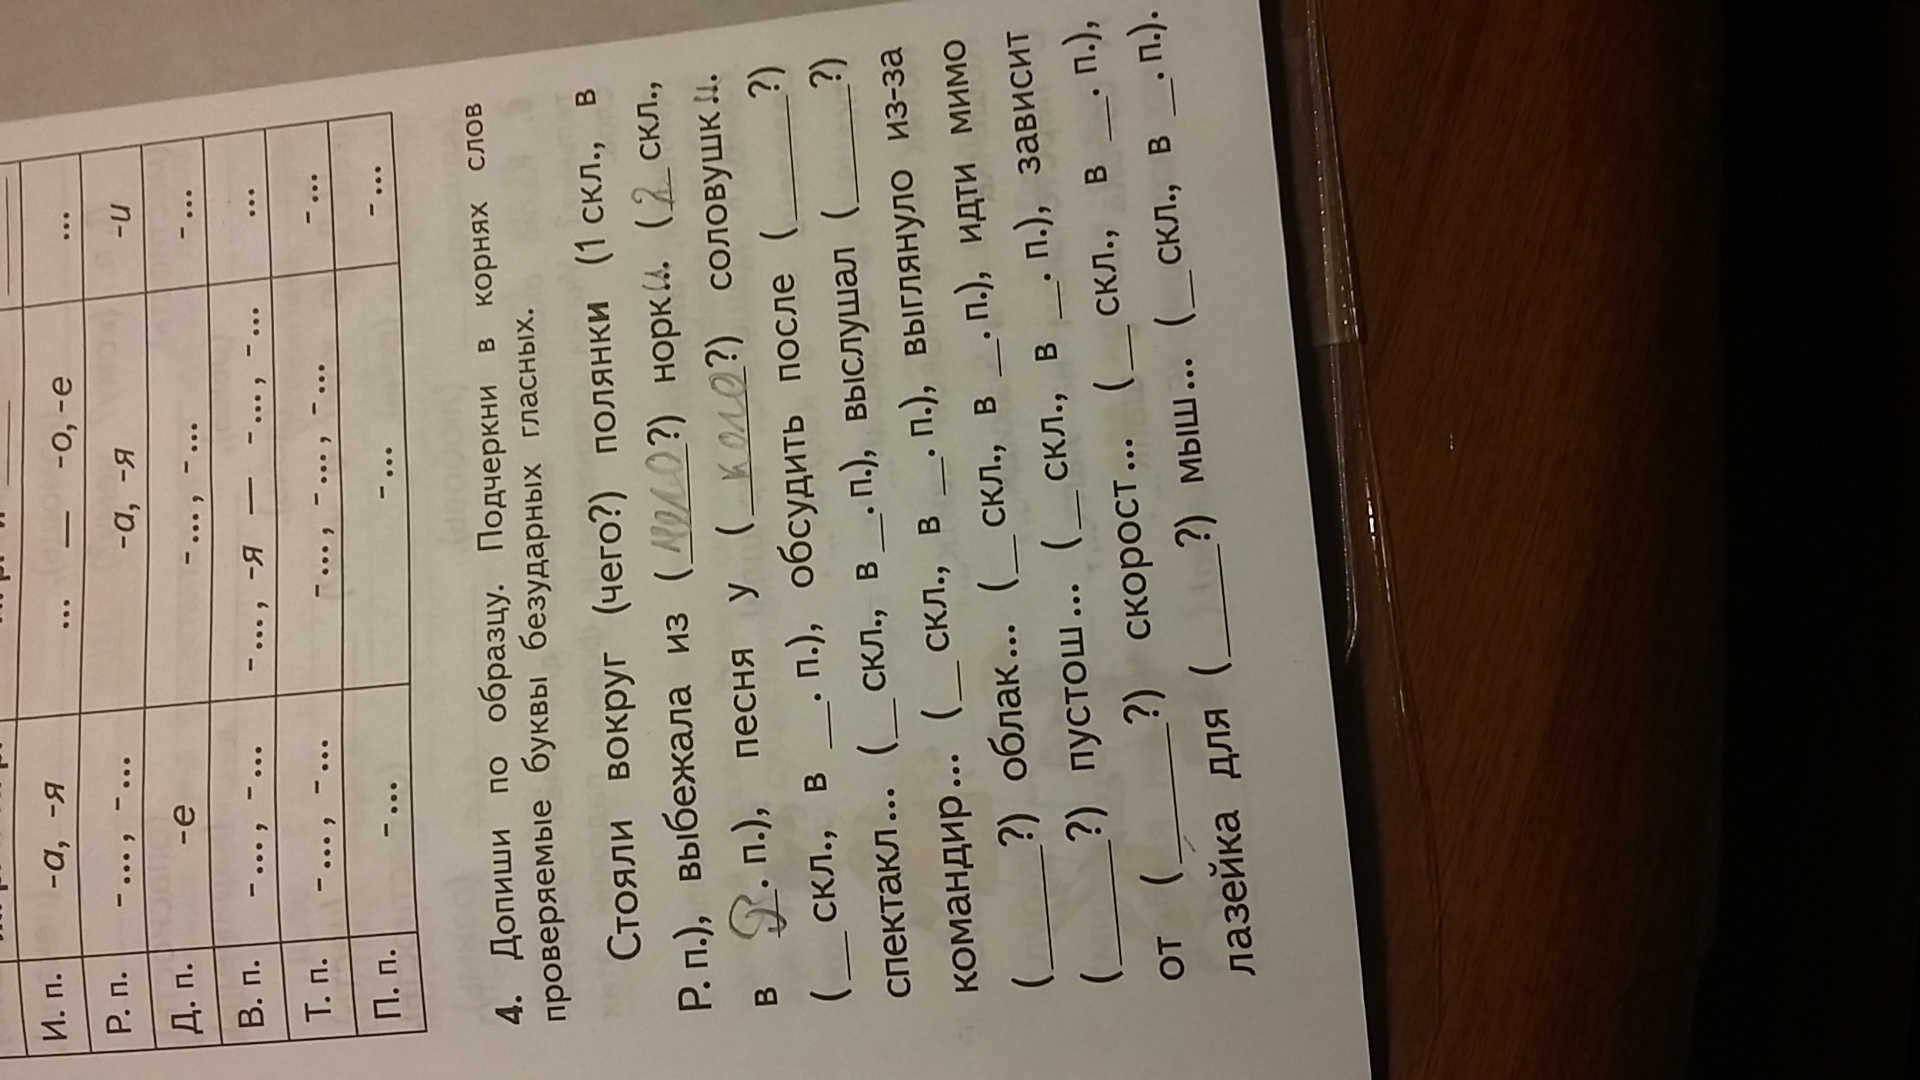 И. п. -а, -я ... — -о, -е ...
Р. п. -..., -... -а, -я -и
Д. п. -е -..., -... -...
В. п. -..., -... -..., -я — -..., -... ...
Т. п. -..., -... -..., -..., -... -...
П. п. -... -... -...
4. Допиши по образцу. Подчеркни в корнях слов
проверяемые буквы безударных гласных.
Стояли вокруг (чего?) полянки (1 скл., в
Р. п.), выбежала из (чего?) норки... (2 скл.,
в Р. п.), песня у (кого?) соловушки...
(__ скл., в __. п.), обсудить после (____?)
спектакл... (__ скл., в __. п.), выслушал (____?)
командир... (__ скл., в __. п.), выглянуло из-за
(____?) облак... (__ скл., в __. п.), идти мимо
(____?) пустош... (__ скл., в __. п.), зависит
от (____?) скорост... (__ скл., в __. п.),
лазейка для (____?) мыш... (__ скл., в __. п.).